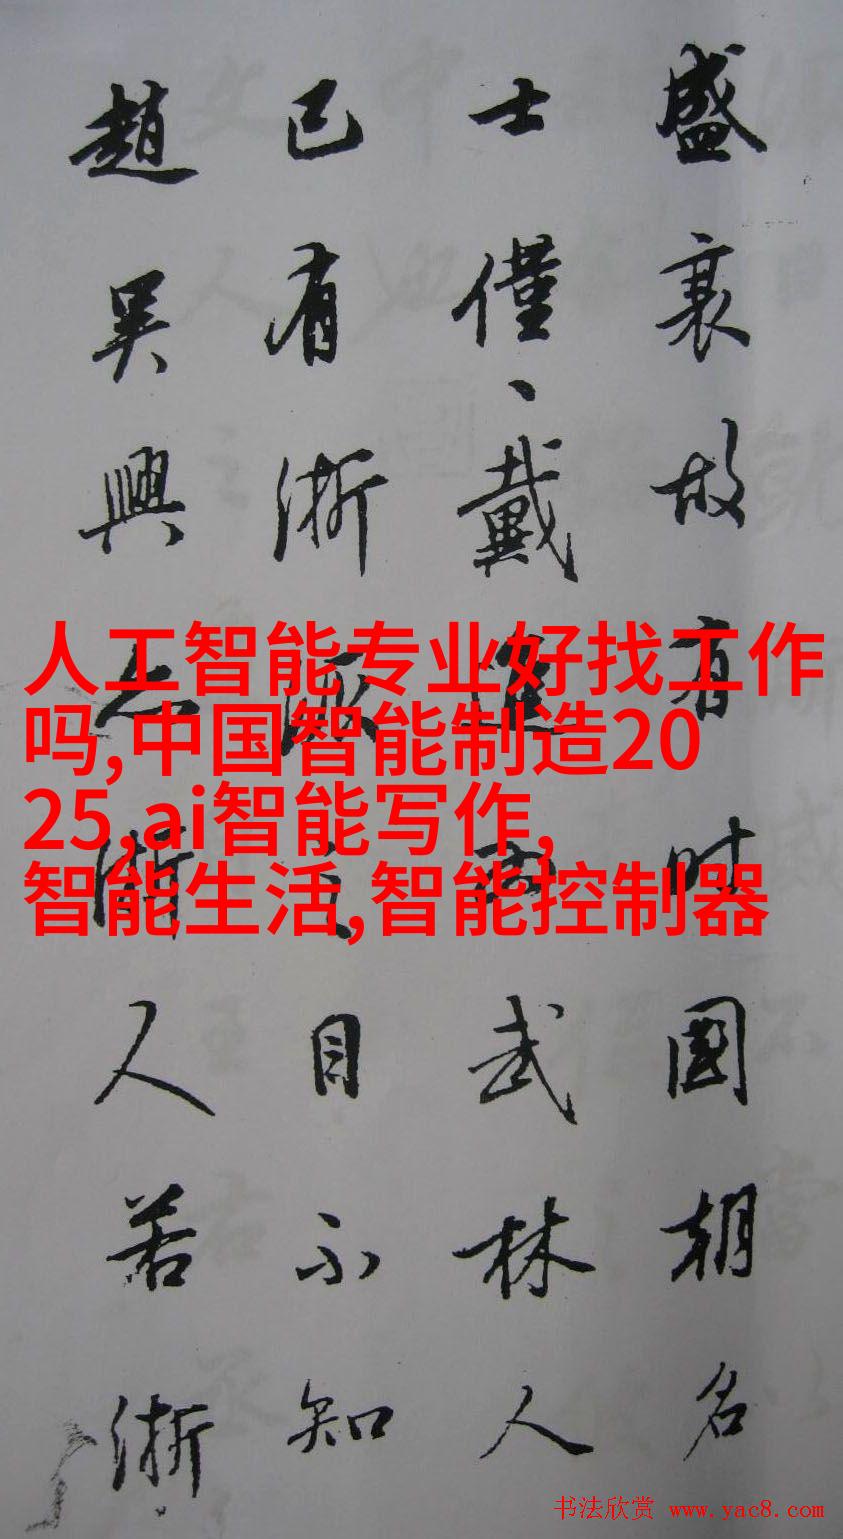 盛衰故有时國朝名
士僅、戴進為武林人
已有浙派之目不知
趙吴興亦浙人若浙
人工智能专业好找工作
吗,中国智能制造20
25,ai智能写作,
智能生活,智能控制器
书法欣赏 www.yac8.com